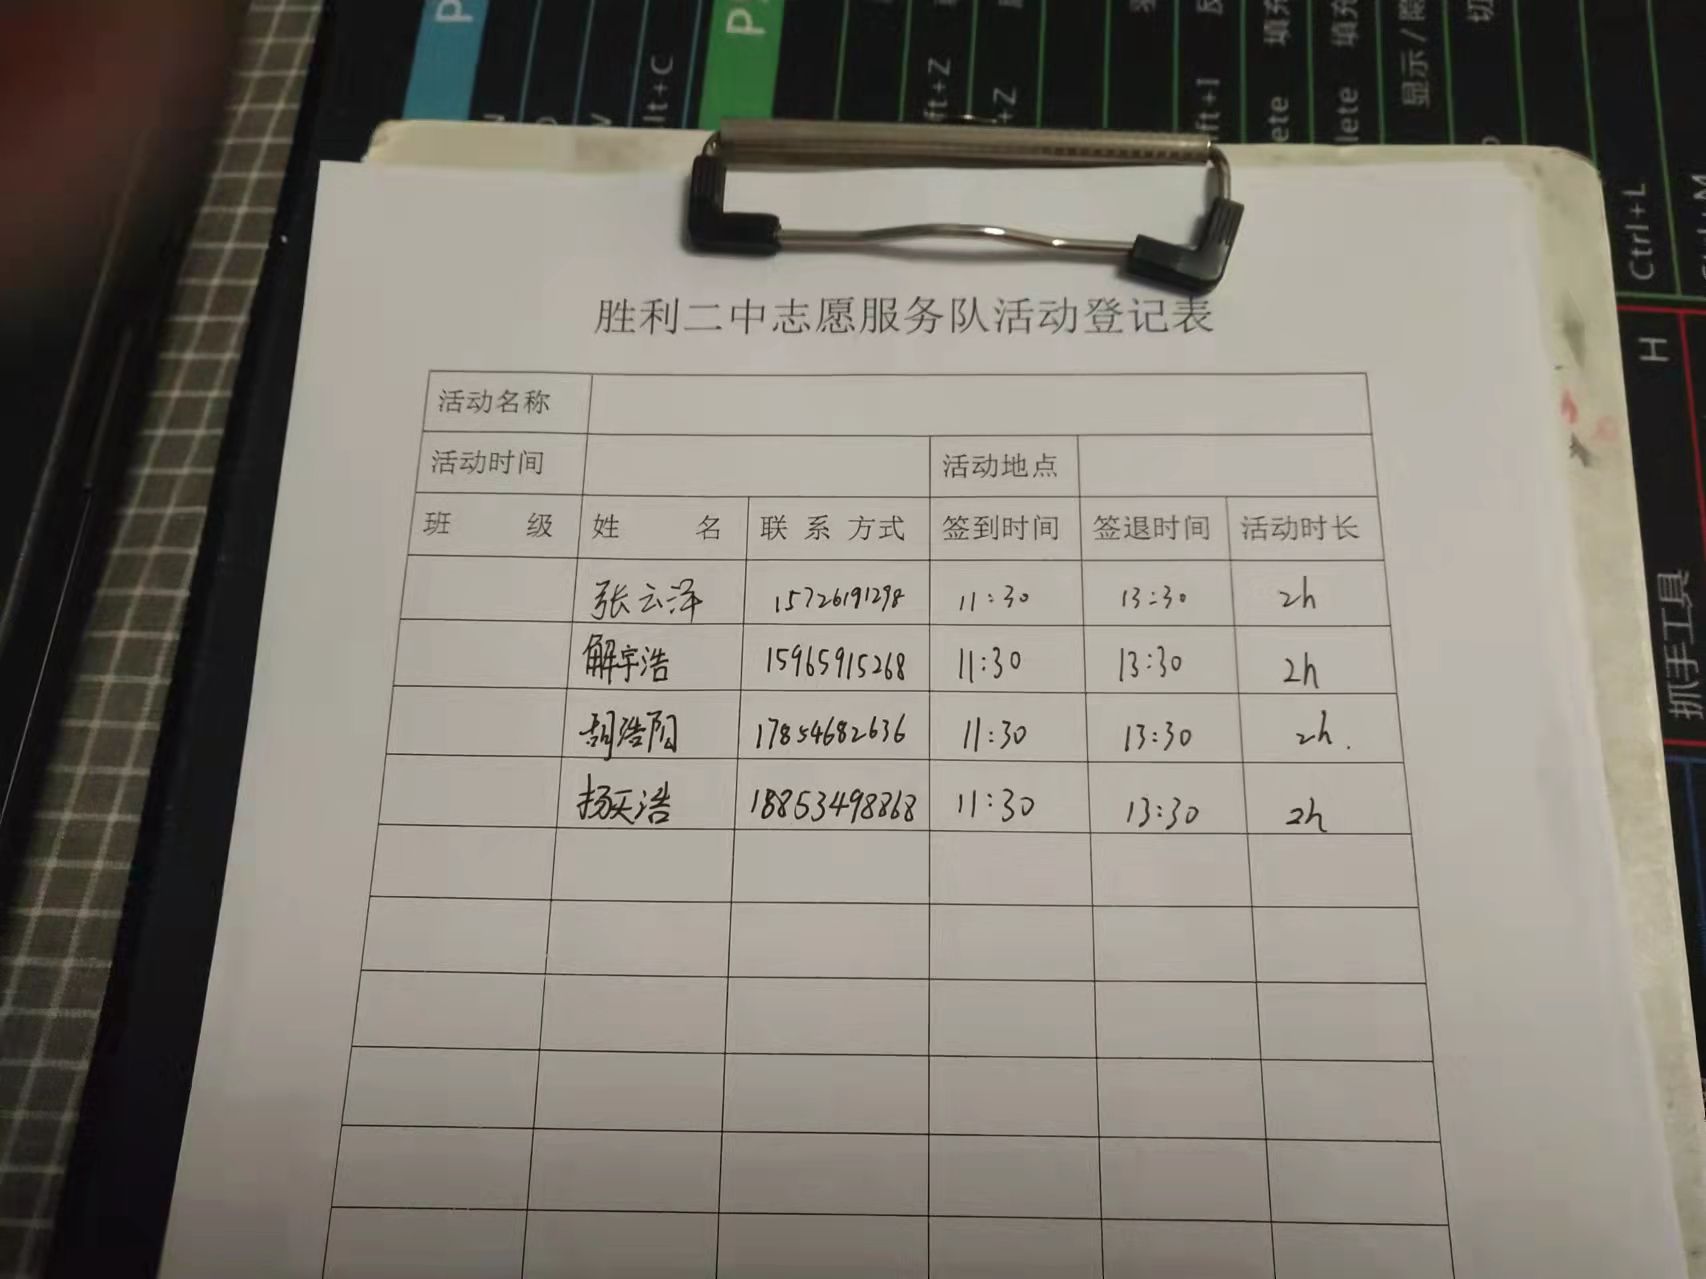 Ctrl+L
H
抓手工具
胜利二中志愿服务队活动登记表
活动名称
活动时间 活动地点
班 级 姓 名 联系方式 签到时间 签退时间 活动时长
张云泽 15726191298 11:30 13:30 2h
解宇浩 15965915268 11:30 13:30 2h
胡浩阳 17854682636 11:30 13:30 2h.
杨天浩 18853498868 11:30 13:30 2h